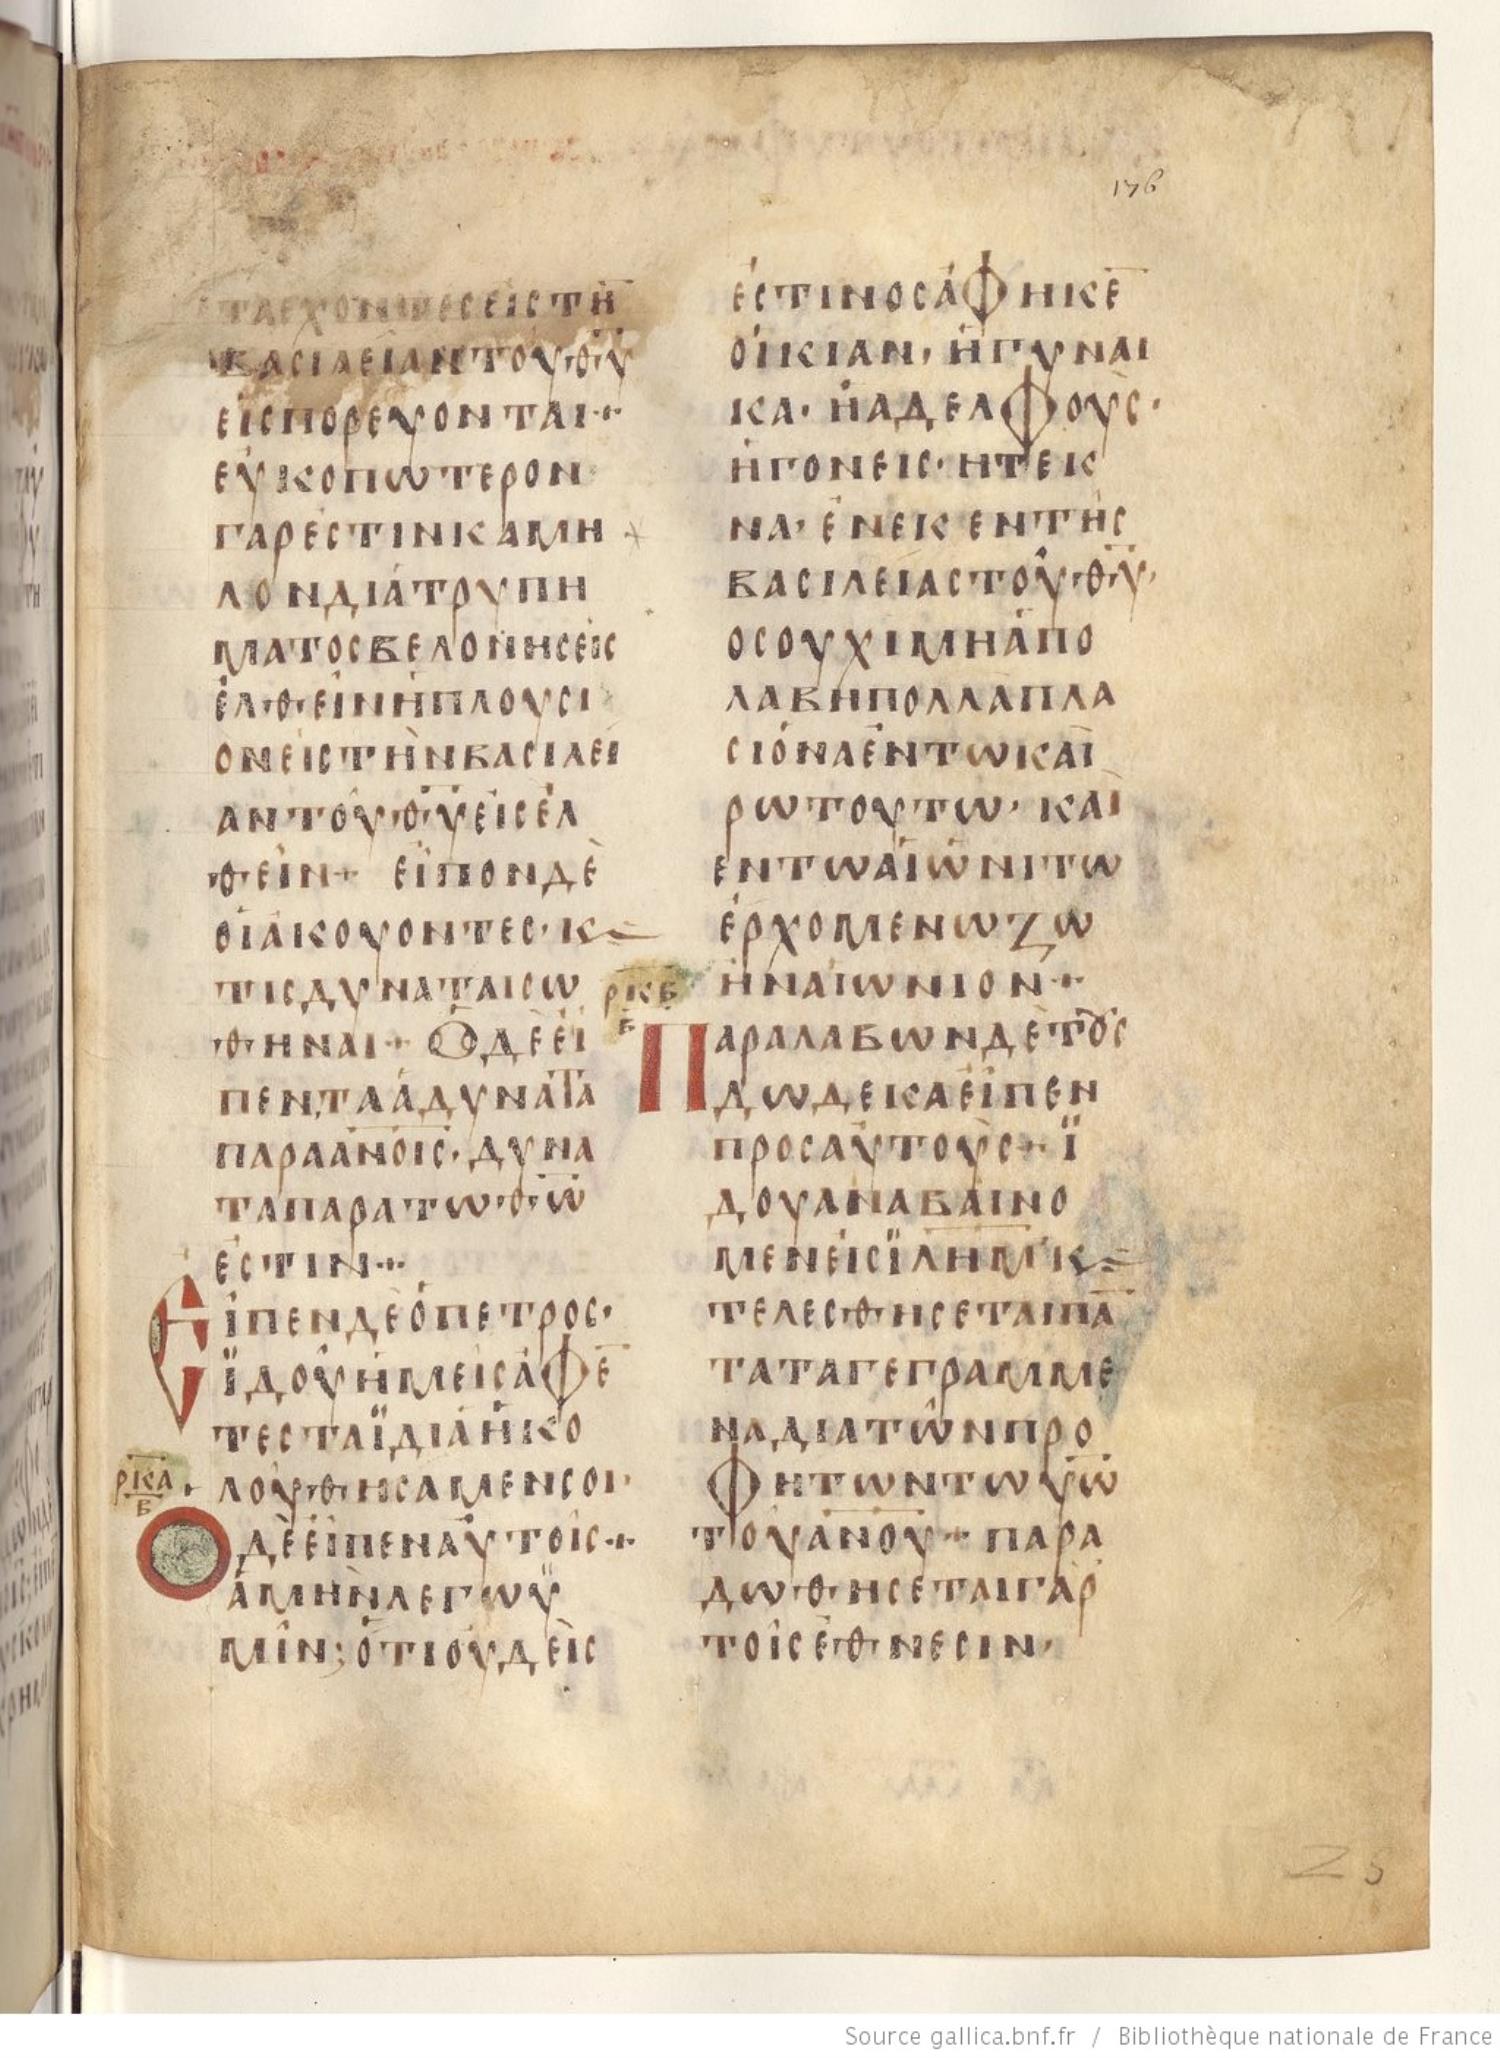 176
ΤΑΕΧΟΝΤΕΣΕΙΣΤΗ̅
ΒΑΣΙΛΕΙΑΝΤΟΥΘ̅Υ̅
ΕΙΣΠΟΡΕΥΟΝΤΑΙ··
ΕΥΚΟΠΩΤΕΡΟΝ
ΓΑΡΕΣΤΙΝΚΑΜΗ
ΛΟΝΔΙΑΤΡΥΠΗ
ΜΑΤΟΣΒΕΛΟΝΗΣΕΙΣ
ΕΛΘΕΙΝΗΠΛΟΥΣΙ
ΟΝΕΙΣΤΗΝΒΑΣΙΛΕΙ
ΑΝΤΟΥΘ̅Υ̅ΕΙΣΕΛ
ΘΕΙΝ·· ΕΙΠΟΝΔΕ
ΟΙΑΚΟΥΟΝΤΕΣ· Κ
ΤΙΣΔΥΝΑΤΑΙΣΩ
ΘΗΝΑΙ·· ΟΔΕΕΙ
ΠΕΝ,ΤΑΑΔΥΝΑΤΑ
ΠΑΡΑΑ̅Ν̅Ο̅Ι̅Σ̅· ΔΥΝΑ
ΤΑΠΑΡΑΤΩΘ̅Ω̅
ΕΣΤΙΝ··
ΕΙΠΕΝΔΕΟΠΕΤΡΟΣ·
ΪΔΟΥΗΜΕΙΣΑΦΕ̅
ΤΕΣΤΑΪΔΙΑΗΚΟ
ΡΚΑ
Β
ΛΟΥΘΗΣΑΜΕΝΣΟΙ·
ΟΔΕΕΙΠΕΝΑΥΤΟΙΣ··
ΑΜΗΝΛΕΓΩΫ
ΜΙΝ; ΟΤΙΟΥΔΕΙΣ
ΕΣΤΙΝΟΣΑΦΗΚΕ̅
ΟΙΚΙΑΝ, ΗΓΥΝΑΙ
ΚΑ· ΗΑΔΕΛΦΟΥΣ·
ΗΓΟΝΕΙΣ· ΗΤΕΚ
ΝΑ· ΕΝΕΚΕΝΤΗΣ
ΒΑΣΙΛΕΙΑΣΤΟΥΘ̅Υ̅,
ΟΣΟΥΧΙΜΗΑΠΟ
ΛΑΒΗΠΟΛΛΑΠΛΑ
ΣΙΟΝΑΕΝΤΩΚΑΙ
ΡΩΤΟΥΤΩ· ΚΑΙ
ΕΝΤΩΑΙΩΝΙΤΩ
ΕΡΧΟΜΕΝΩΖΩ
ΗΝΑΙΩΝΙΟΝ··
ΡΚΒ
Β
ΠΑΡΑΛΑΒΩΝΔΕΤΟΥΣ
ΔΩΔΕΚΑΕΙΠΕΝ
ΠΡΟΣΑΥΤΟΥΣ·· Ϊ
ΔΟΥΑΝΑΒΑΙΝΟ
ΜΕΝΕΙΣΪ̅Λ̅Η̅Μ̅· Κ
ΤΕΛΕΣΘΗΣΕΤΑΙΠΑ̅
ΤΑΤΑΓΕΓΡΑΜΜΕ
ΝΑΔΙΑΤΩΝΠΡΟ
ΦΗΤΩΝΤΩΥ̅Ω̅
ΤΟΥΑ̅Ν̅Ο̅Υ̅·· ΠΑΡΑ
ΔΩΘΗΣΕΤΑΙΓΑΡ
ΤΟΙΣΕΘΝΕΣΙΝ,
Source gallica.bnf.fr / Bibliothèque nationale de France